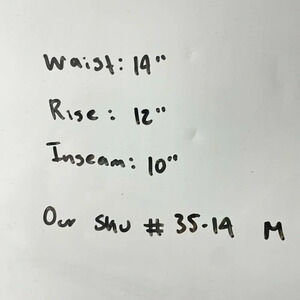 Waist: 14"
Rise: 12"
Inseam: 10"
Our Shu # 35-14 M